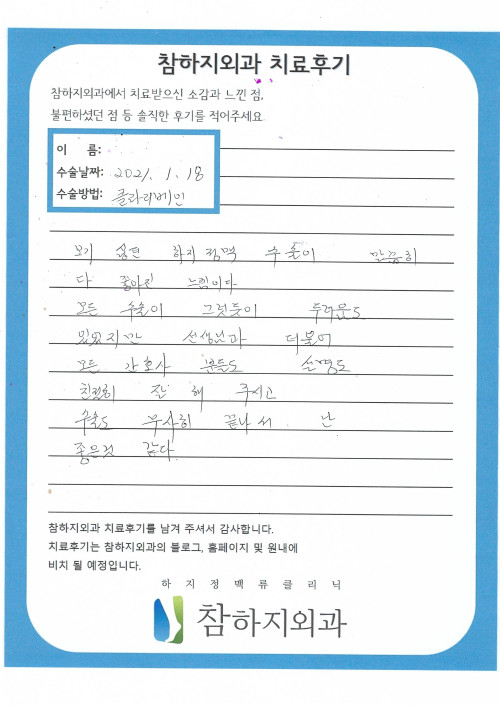 참하지외과 치료후기
참하지외과에서 치료받으신 소감과 느낀 점,
불편하셨던 점 등 솔직한 후기를 적어주세요
이 름:
수술날짜: 2021. 1. 18
수술방법: 클라리베인
보기 싫던 하지정맥 수술이 말끔히
다 좋아진 느낌이다
모든 수술이 그렇듯이 두려움도
있었지만 선생님과 더불어
모든 간호사 분들도 설명도
친절히 잘 해 주시고
수술도 무사히 끝나서 난
좋은것 같다
참하지외과 치료후기를 남겨 주셔서 감사합니다.
치료후기는 참하지외과의 블로그, 홈페이지 및 원내에
비치 될 예정입니다.
하지정맥류클리닉
참하지외과